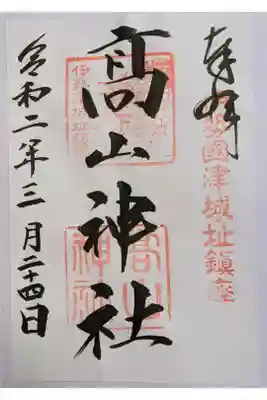 奉拝
伊勢國津城址鎮座
高山神社
高山神社
令和二年三月二十四日